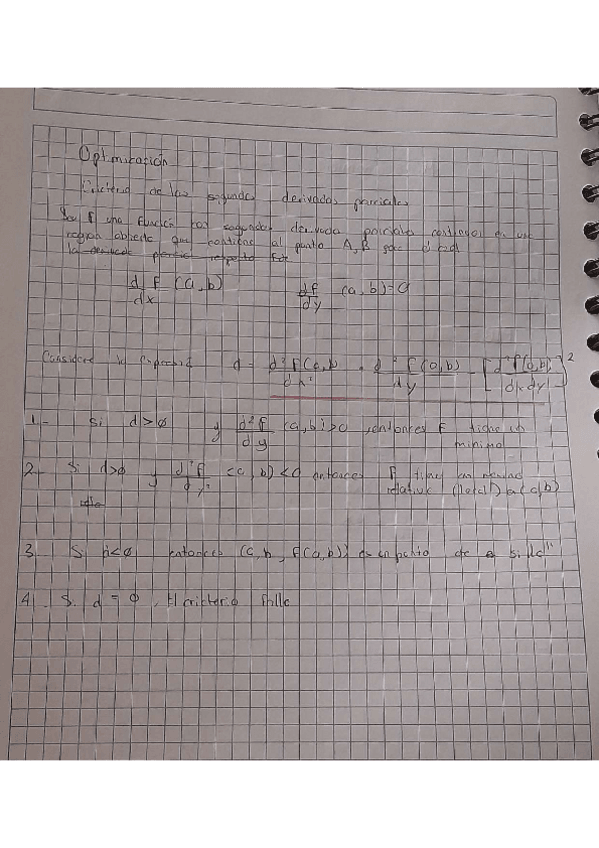 Optimización
Criterio de las segundas derivadas parciales
Sea f una función con segundas derivada parciales continuas en una
región abierta que contiene al punto A,B para el cual
la derivada parcial respecto
df/dx (a,b) df/dy (a,b)=0
Considere la expresión d = d²f(a,b)/dx² · d²f(a,b)/dy - [d²f(a,b)/dxdy]²
1.- Si d>0 y d²f/dy (a,b)>0, entonces F tiene un
minimo
2.- Si d>0 y d²f/dy² (a,b)<0 entonces f tiene un
relativo (local) a(a,b)
3. Si <0 entonces (a,b, f(a,b)) es un punto de silla"
4. Si d = 0, El criterio falla